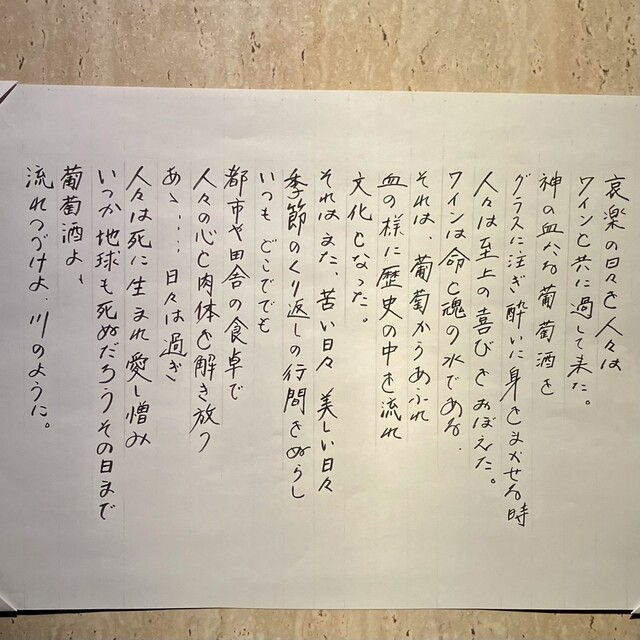 哀楽の日々を人々は
ワインと共に過して来た。
神の血なる葡萄酒を
グラスに注ぎ酔いに身をまかせる時
人々は至上の喜びをおぼえた。
ワインは命と魂の水である.
それは、葡萄からあふれ
血の様に歴史の中を流れ
文化となった。
それはまた、苦い日々 美しい日々
季節のくり返しの行間をぬらし
いつも どこででも
都市や田舎の食卓で
人々の心と肉体を解き放つ
あゝ…… 日々は過ぎ
人々は死に生まれ愛し憎み
いつか地球も死ぬだろうその日まで
葡萄酒よ、
流れつづけよ、川のように。